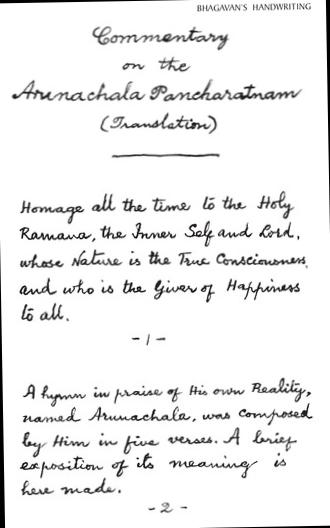 BHAGAVAN'S HANDWRITING
Commentary
on the
Arunachala Pancharatnam
(Translation)
Homage all the time to the Holy
Ramana, the Inner Self and Lord,
whose Nature is the True Consciousness,
and who is the Giver of Happiness
to all.
- 1 -
A hymn in praise of His own Reality,
named Arunachala, was composed
by Him in five verses. A brief
exposition of its meaning is
here made.
- 2 -